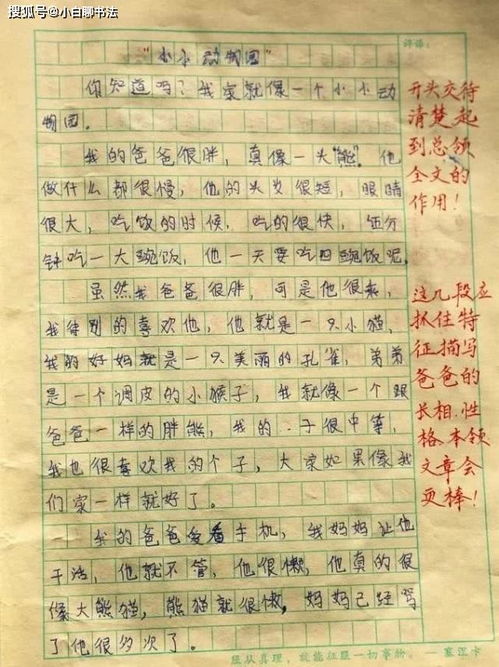 搜狐号@小白聊书法
评语：
"小小动物园"
你知道吗？我家就像一个小小动
物园。
我的爸爸很胖，真像一头"熊"。他
做什么都很慢，他的头发很短，眼睛
很大，吃饭的时候，吃的很快，五分
钟吃一大碗饭，他一天要吃四碗饭呢。
虽然我爸爸很胖，可是他很
我特别的喜欢他，他就是一只小猫，
我的好妈就是一只美丽的孔雀，弟弟
是一个调皮的小猴子，我就像一个跟
爸爸一样的胖熊，我的 子很中等，
我也很喜欢我的个子，大家如果像我
们家一样就好了。
我的爸爸爱看手机，我妈妈让他
干活，他就不管，他很懒，他真的很
像大熊猫，熊猫就很懒，妈妈已经骂
了他很多次了。
开头交待
清楚起
到总领
全文的
作用！
这几段应
抓住特
征描写
爸爸的
长相、性
格、本领
文章会
更棒！
服从真理，就能征服一切事物。 — 塞涅卡